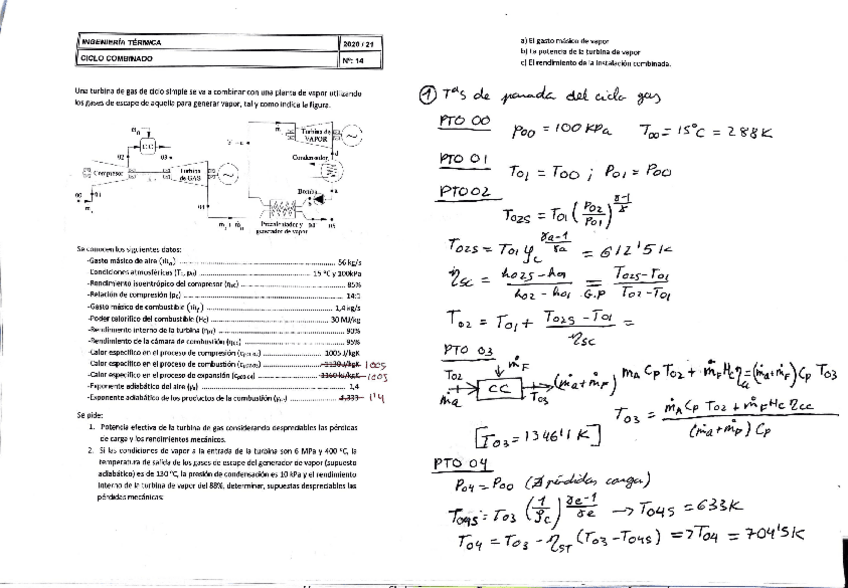 INGENIERÍA TÉRMICA
2020 / 21
CICLO COMBINADO
Nº: 14
Una turbina de gas de ciclo simple se va a combinar con una planta de vapor utilizando
los gases de escape de aquella para generar vapor, tal y como indica la figura.
CC
02
03
Compresor
Turbina
de GAS
Turbina de
VAPOR
Condensador
Bomba
generador de vapor
04
05
Se conocen los siguientes datos:
-Gasto másico de aire (ṁa) 56 kg/s
-Condiciones atmosféricas (T₁, p₀) 15 ºC y 100kPa
-Rendimiento isoentrópico del compresor 85%
-Relación de compresión 14:1
-Gasto másico de combustible 1,4 kg/s
-Poder calorífico del combustible (Hc) 30 MJ/kg
-Rendimiento interno de la turbina 90%
-Rendimiento de la cámara de combustión 95%
-Calor específico en el proceso de compresión 1005 J/kgK
-Calor específico en el proceso de combustión 1005
-Calor específico en el proceso de expansión 1005
-Exponente adiabático del aire 1,4
-Exponente adiabático de los productos de la combustión 1,333 1'4
Se pide:
1. Potencia efectiva de la turbina de gas considerando despreciables las pérdidas
de carga y los rendimientos mecánicos.
2. Si las condiciones de vapor a la entrada de la turbina son 6 MPa y 400 ºC, la
temperatura de salida de los gases de escape del generador de vapor (supuesto
adiabático) es de 130 ºC, la presión de condensación es 10 kPa y el rendimiento
interno de la turbina de vapor del 88%, determinar, supuestas despreciables las
pérdidas mecánicas:
a) El gasto másico de vapor
b) La potencia de la turbina de vapor
c) El rendimiento de la instalación combinada.
① Tªs de parada del ciclo gas
PTO 00
P00 = 100 KPa T00 = 15°C = 288K
PTO 01
T01 = T00 ; P01 = P00
PTO 02
T02S = T01 (P02/P01)^(γ-1/γ)
T02S = T01 ρc^(γa-1/γa) = 612'5 K
ηSC = h02S - h01 / h02 - h01 =G.P T02S - T01 / T02 - T01
T02 = T01 + T02S - T01 / ηSC =
PTO 03
T02 ṁa → CC ṁF → T03 (ṁa+ṁF)
ṁA CP T02 + ṁF Hc ηcc = (ṁa+ṁF) CP T03
T03 = ṁA CP T02 + ṁF Hc ηcc / (ṁa+ṁF) CP
[T03 = 1346'1 K]
PTO 04
P04 = P00 (∄ pérdidas carga)
T04S = T03 (1/ρc)^(γe-1/γe) → T04S = 633K
T04 = T03 - ηST (T03 - T04S) => T04 = 704'5K